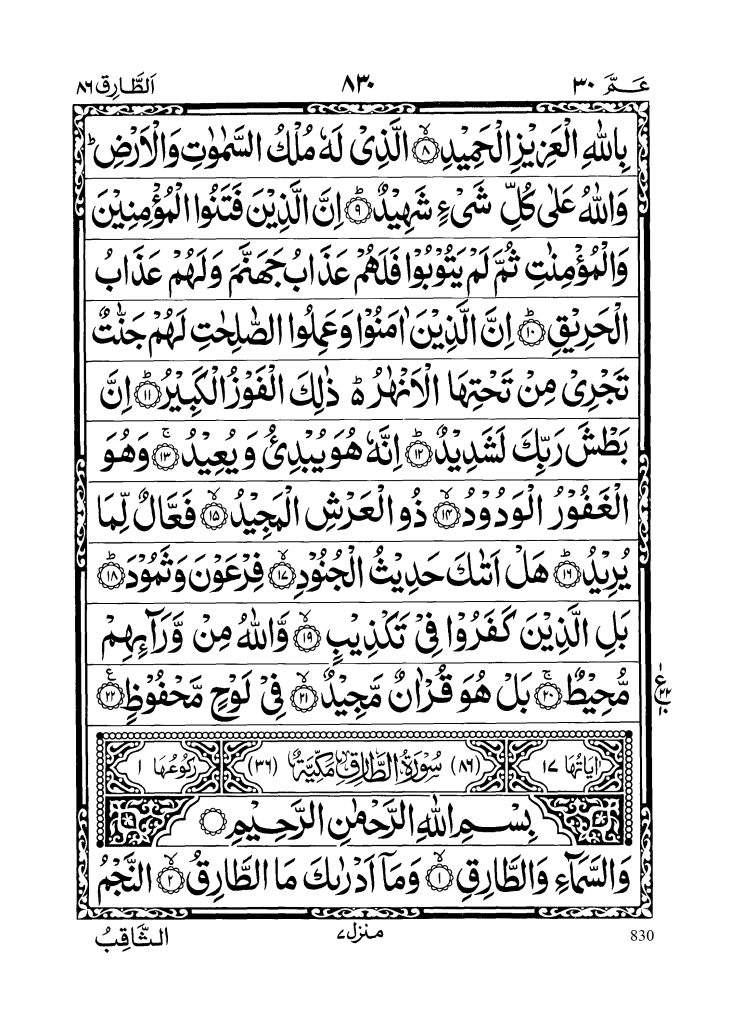 عَـمَّ ٣٠
٨٣٠
اَلطَّارِق ٨٦
بِاللّٰهِ الْعَزِيْزِ الْحَمِيْدِ ﴿٨﴾ الَّذِىْ لَهٗ مُلْكُ السَّمٰوٰتِ وَالْاَرْضِؕ
وَاللّٰهُ عَلٰى كُلِّ شَىْءٍ شَهِيْدٌؕ ﴿٩﴾ اِنَّ الَّذِيْنَ فَتَنُوا الْمُؤْمِنِيْنَ
وَالْمُؤْمِنٰتِ ثُمَّ لَمْ يَتُوْبُوْا فَلَهُمْ عَذَابُ جَهَنَّمَ وَلَهُمْ عَذَابُ
الْحَرِيْقِؕ ﴿١٠﴾ اِنَّ الَّذِيْنَ اٰمَنُوْا وَعَمِلُوا الصّٰلِحٰتِ لَهُمْ جَنّٰتٌ
تَجْرِىْ مِنْ تَحْتِهَا الْاَنْهٰرُ ؕ ذٰلِكَ الْفَوْزُ الْكَبِيْرُؕ ﴿١١﴾ اِنَّ
بَطْشَ رَبِّكَ لَشَدِيْدٌؕ ﴿١٢﴾ اِنَّهٗ هُوَ يُبْدِئُ وَيُعِيْدُۚ ﴿١٣﴾ وَهُوَ
الْغَفُوْرُ الْوَدُوْدُۙ ﴿١٤﴾ ذُو الْعَرْشِ الْمَجِيْدُۙ ﴿١٥﴾ فَعَّالٌ لِّمَا
يُرِيْدُؕ ﴿١٦﴾ هَلْ اَتٰىكَ حَدِيْثُ الْجُنُوْدِۙ ﴿١٧﴾ فِرْعَوْنَ وَثَمُوْدَؕ ﴿١٨﴾
بَلِ الَّذِيْنَ كَفَرُوْا فِىْ تَكْذِيْبٍۙ ﴿١٩﴾ وَّاللّٰهُ مِنْ وَّرَآئِهِمْ
مُّحِيْطٌۚ ﴿٢٠﴾ بَلْ هُوَ قُرْاٰنٌ مَّجِيْدٌۙ ﴿٢١﴾ فِىْ لَوْحٍ مَّحْفُوْظٍ ﴿٢٢﴾
١ ع ٢٢ ١٠
اٰيَاتُهَا ١٧ (٨٦) سُوْرَةُ الطَّارِقِ مَكِّيَّةٌ (٣٦) رُكُوْعُهَا ١
بِسْمِ اللّٰهِ الرَّحْمٰنِ الرَّحِيْمِ
وَالسَّمَآءِ وَالطَّارِقِۙ ﴿١﴾ وَمَآ اَدْرٰىكَ مَا الطَّارِقُۙ ﴿٢﴾ النَّجْمُ
830
منزل ٧
الثَّاقِبُ